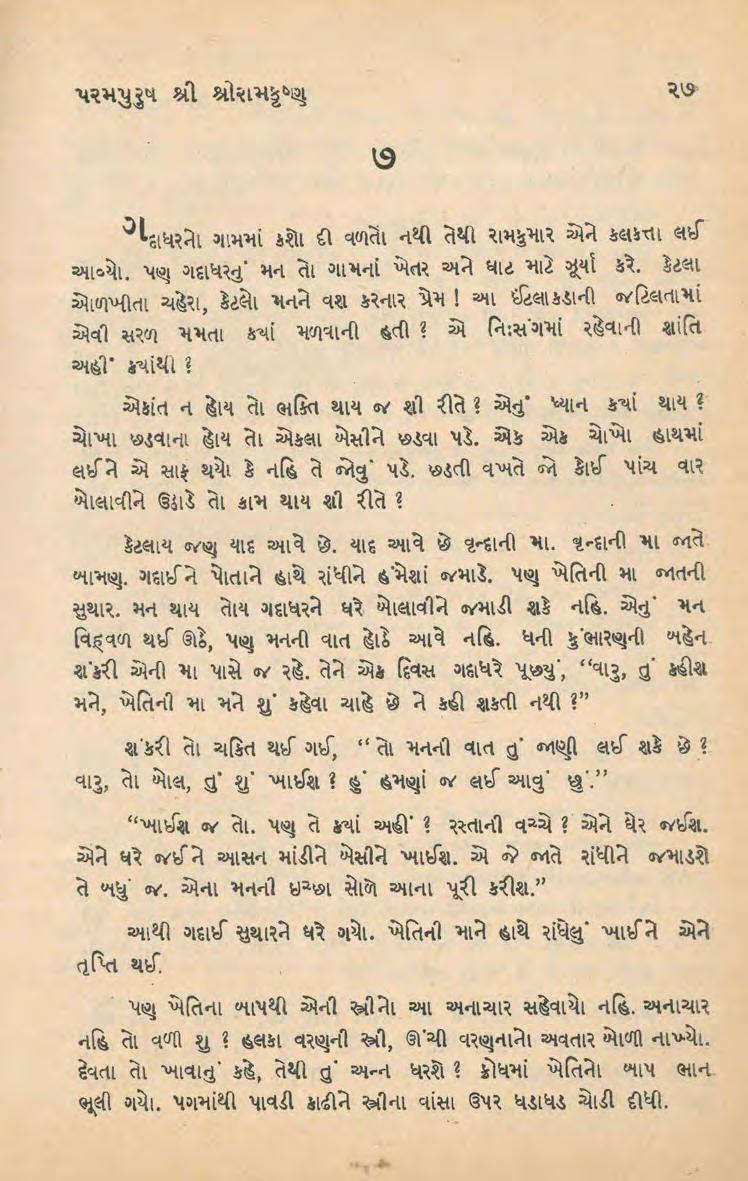 પરમપુરુષ શ્રી શ્રીરામકૃષ્ણ ૨૭
૭
ગદાધરનો ગામમાં કશો દી વળતો નથી તેથી રામકુમાર એને કલકત્તા લઈ
આવ્યો. પણ ગદાધરનું મન તો ગામનાં ખેતર અને ઘાટ માટે ઝૂર્યાં કરે. કેટલા
ઓળખીતા ચહેરા, કેટલો મનને વશ કરનાર પ્રેમ ! આ ઈંટલાકડાની જટિલતામાં
એવી સરળ મમતા કયાં મળવાની હતી ? એ નિઃસંગમાં રહેવાની શાંતિ
અહીં ક્યાંથી ?
એકાંત ન હોય તો ભક્તિ થાય જ શી રીતે ? એનું ધ્યાન કયાં થાય ?
ચોખા છડવાના હોય તો એકલા બેસીને છડવા પડે. એક એક ચોખો હાથમાં
લઈને એ સાફ થયો કે નહિ તે જોવું પડે. છડતી વખતે જો કોઈ પાંચ વાર
બોલાવીને ઉઠાડે તો કામ થાય શી રીતે ?
કેટલાય જણ યાદ આવે છે. યાદ આવે છે વૃન્દાની મા. વૃન્દાની મા જાતે
બામણ. ગદાઈને પોતાને હાથે રાંધીને હંમેશાં જમાડે. પણ ખેતિની મા જાતની
સુથાર. મન થાય તોય ગદાધરને ઘરે બોલાવીને જમાડી શકે નહિ. એનું મન
વિહ્‌વળ થઈ ઊઠે, પણ મનની વાત હોઠે આવે નહિ. ધની કુંભારણની બહેન
શંકરી એની મા પાસે જ રહે. તેને એક દિવસ ગદાધરે પૂછ્યું, “વારુ, તું કહીશ
મને, ખેતિની મા મને શું કહેવા ચાહે છે ને કહી શકતી નથી ?”
શંકરી તો ચકિત થઈ ગઈ, “ તો મનની વાત તું જાણી લઈ શકે છે ?
વારુ, તો બોલ, તું શું ખાઈશ ? હું હમણાં જ લઈ આવું છું.”
“ખાઈશ જ તો. પણ તે ક્યાં અહીં ? રસ્તાની વચ્ચે ? એને ઘેર જઈશ.
એને ઘરે જઈને આસન માંડીને બેસીને ખાઈશ. એ જે જાતે રાંધીને જમાડશે
તે બધું જ. એના મનની ઇચ્છા સોળે આના પૂરી કરીશ.”
આથી ગદાઈ સુથારને ઘરે ગયો. ખેતિની માને હાથે રાંધેલું ખાઈને એને
તૃપ્તિ થઈ.
પણ ખેતિના બાપથી એની સ્ત્રીનો આ અનાચાર સહેવાયો નહિ. અનાચાર
નહિ તો વળી શુ ? હલકા વરણની સ્ત્રી, ઊંચી વરણનાનો અવતાર બોળી નાખ્યો.
દેવતા તો ખાવાનું કહે, તેથી તું અન્ન ધરશે ? ક્રોધમાં ખેતિનો બાપ ભાન
ભૂલી ગયો. પગમાંથી પાવડી કાઢીને સ્ત્રીના વાંસા ઉપર ધડાધડ ચોડી દીધી.